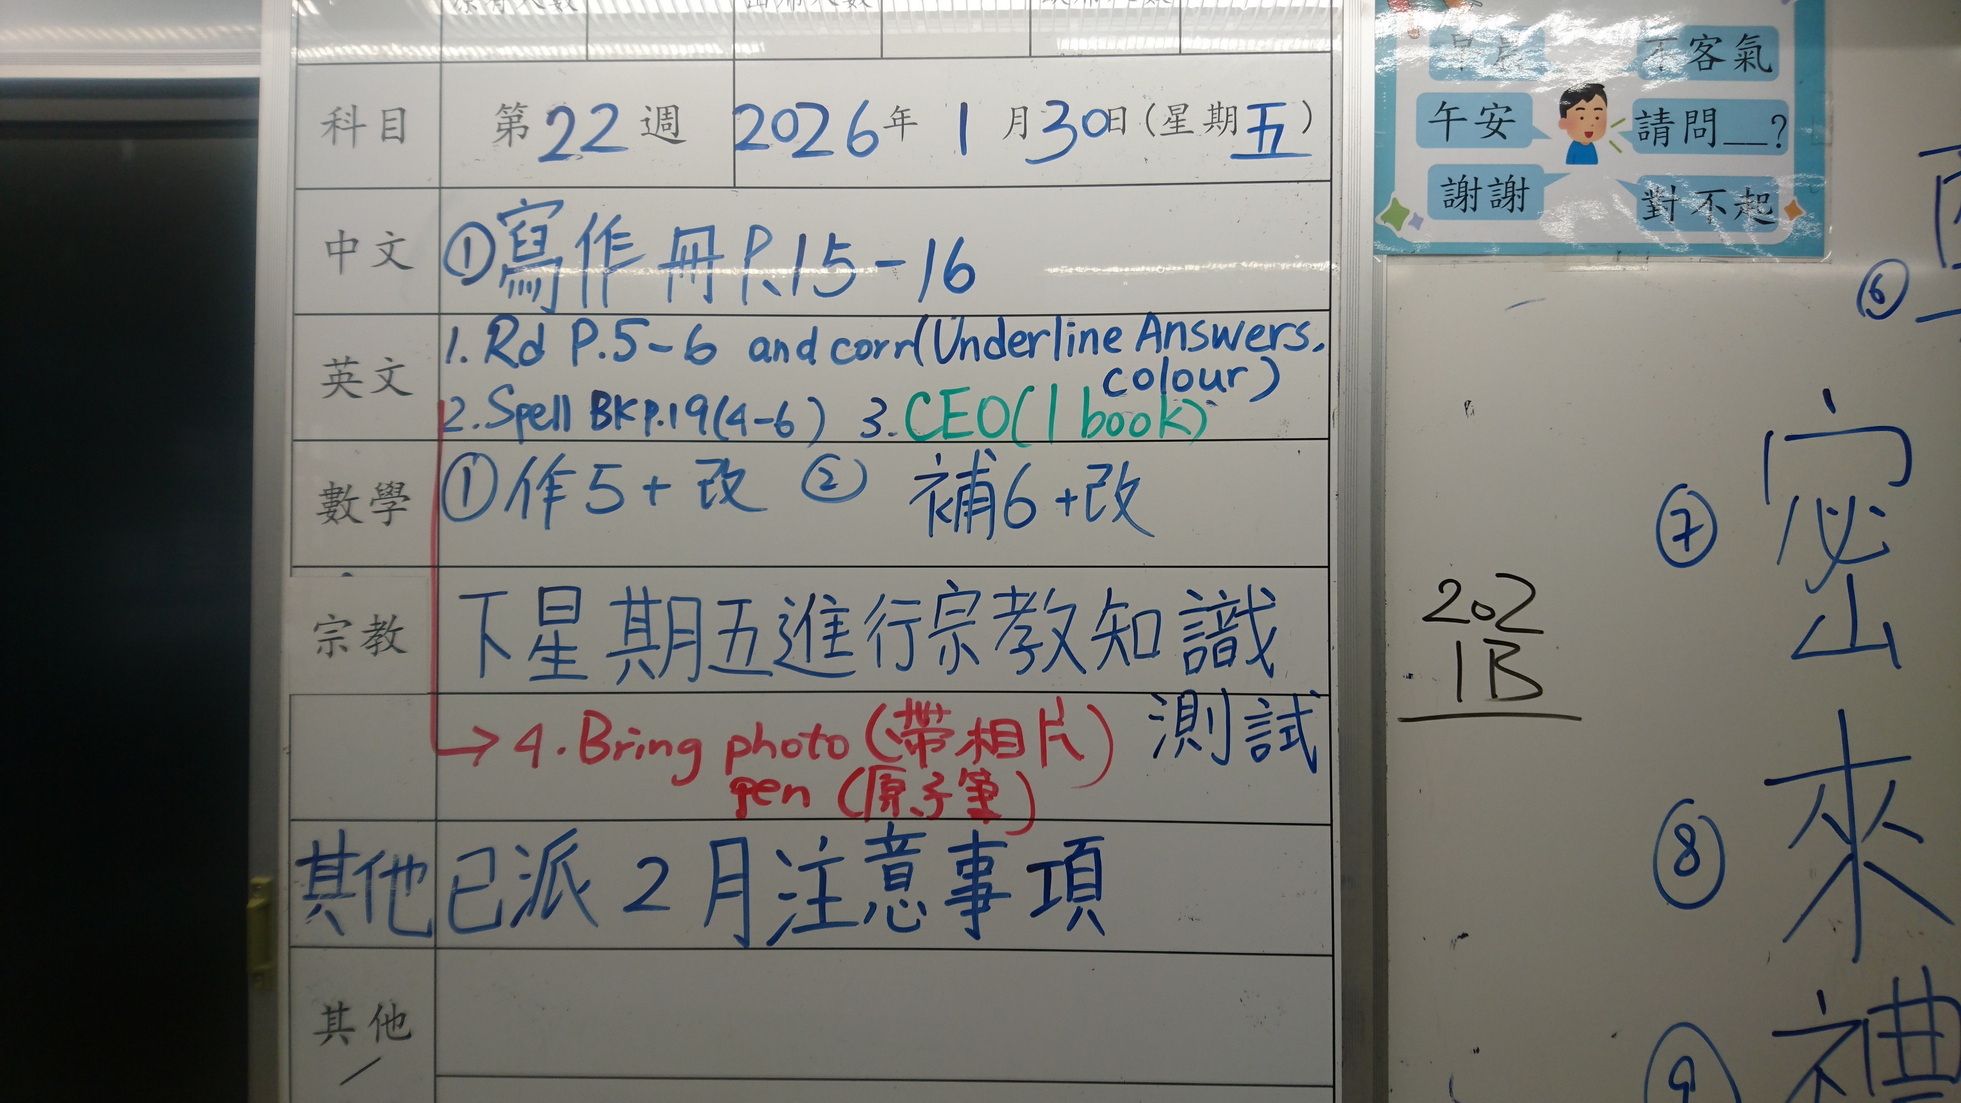 科目 第22週 2026年1月30日(星期五)
中文 ①寫作冊P.15-16
英文 1. Rd P.5-6 and corr(Underline Answers, colour)
2. Spell BK P.19(4-6) 3. CEO(1 book)
數學 ①作5+改 ② 補6+改
宗教 下星期五進行宗教知識
測試
→ 4. Bring photo (帶相片)
pen (原子筆)
其他 已派2月注意事項
其他
不客氣
午安
請問__?
謝謝
對不起
⑥
⑦ 密
202
1B
⑧ 來
⑨ 禮